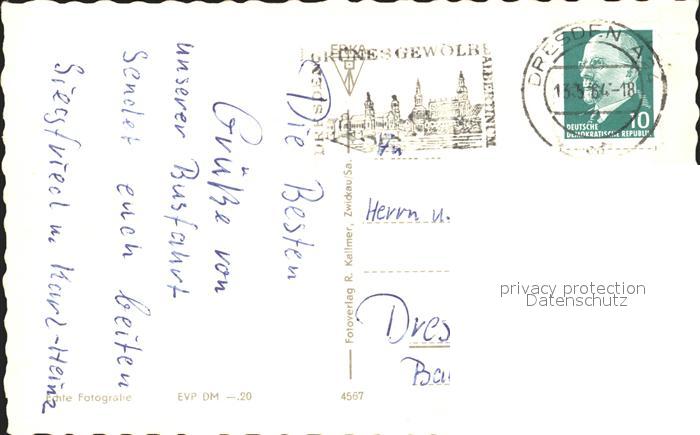 Die Besten
Grüße von
unserer Busfahrt
sendet euch beiten
Siegfried u. Karl-Heinz
Echte Fotografie
EVP DM —.20
4567
Fotoverlag R. Kallmer, Zwickau/Sa.
GRÜNES GEWÖLBE
ALBERTINUM
DRESDEN
13.5.64.-18
DEUTSCHE
DEMOKRATISCHE REPUBLIK
10
An
Herrn u.
Dres
Bau
privacy protection
Datenschutz